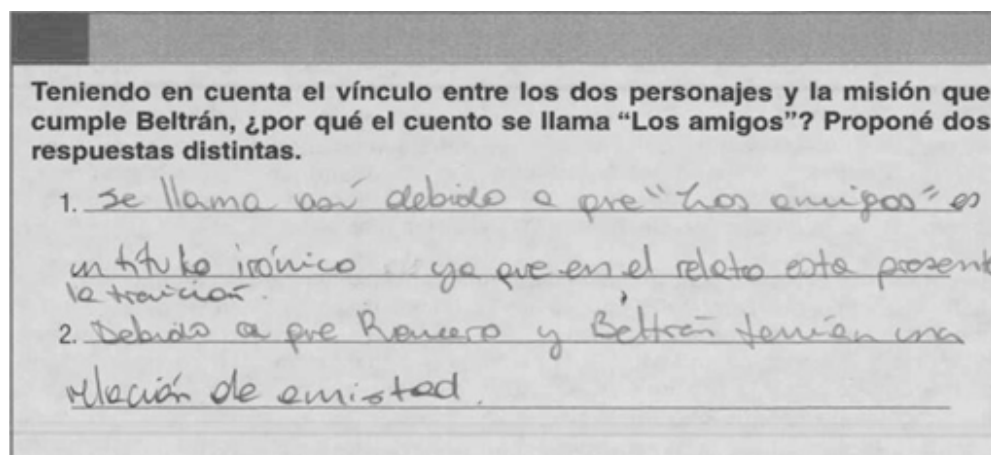 Teniendo en cuenta el vínculo entre los dos personajes y la misión que
cumple Beltrán, ¿por qué el cuento se llama “Los amigos”? Proponé dos
respuestas distintas.
1. Se llama así debido a que "Los amigos" es
un título irónico ya que en el relato esta present
la traición.
2. Debido a que Romero y Beltrán tenían una
relación de amistad.